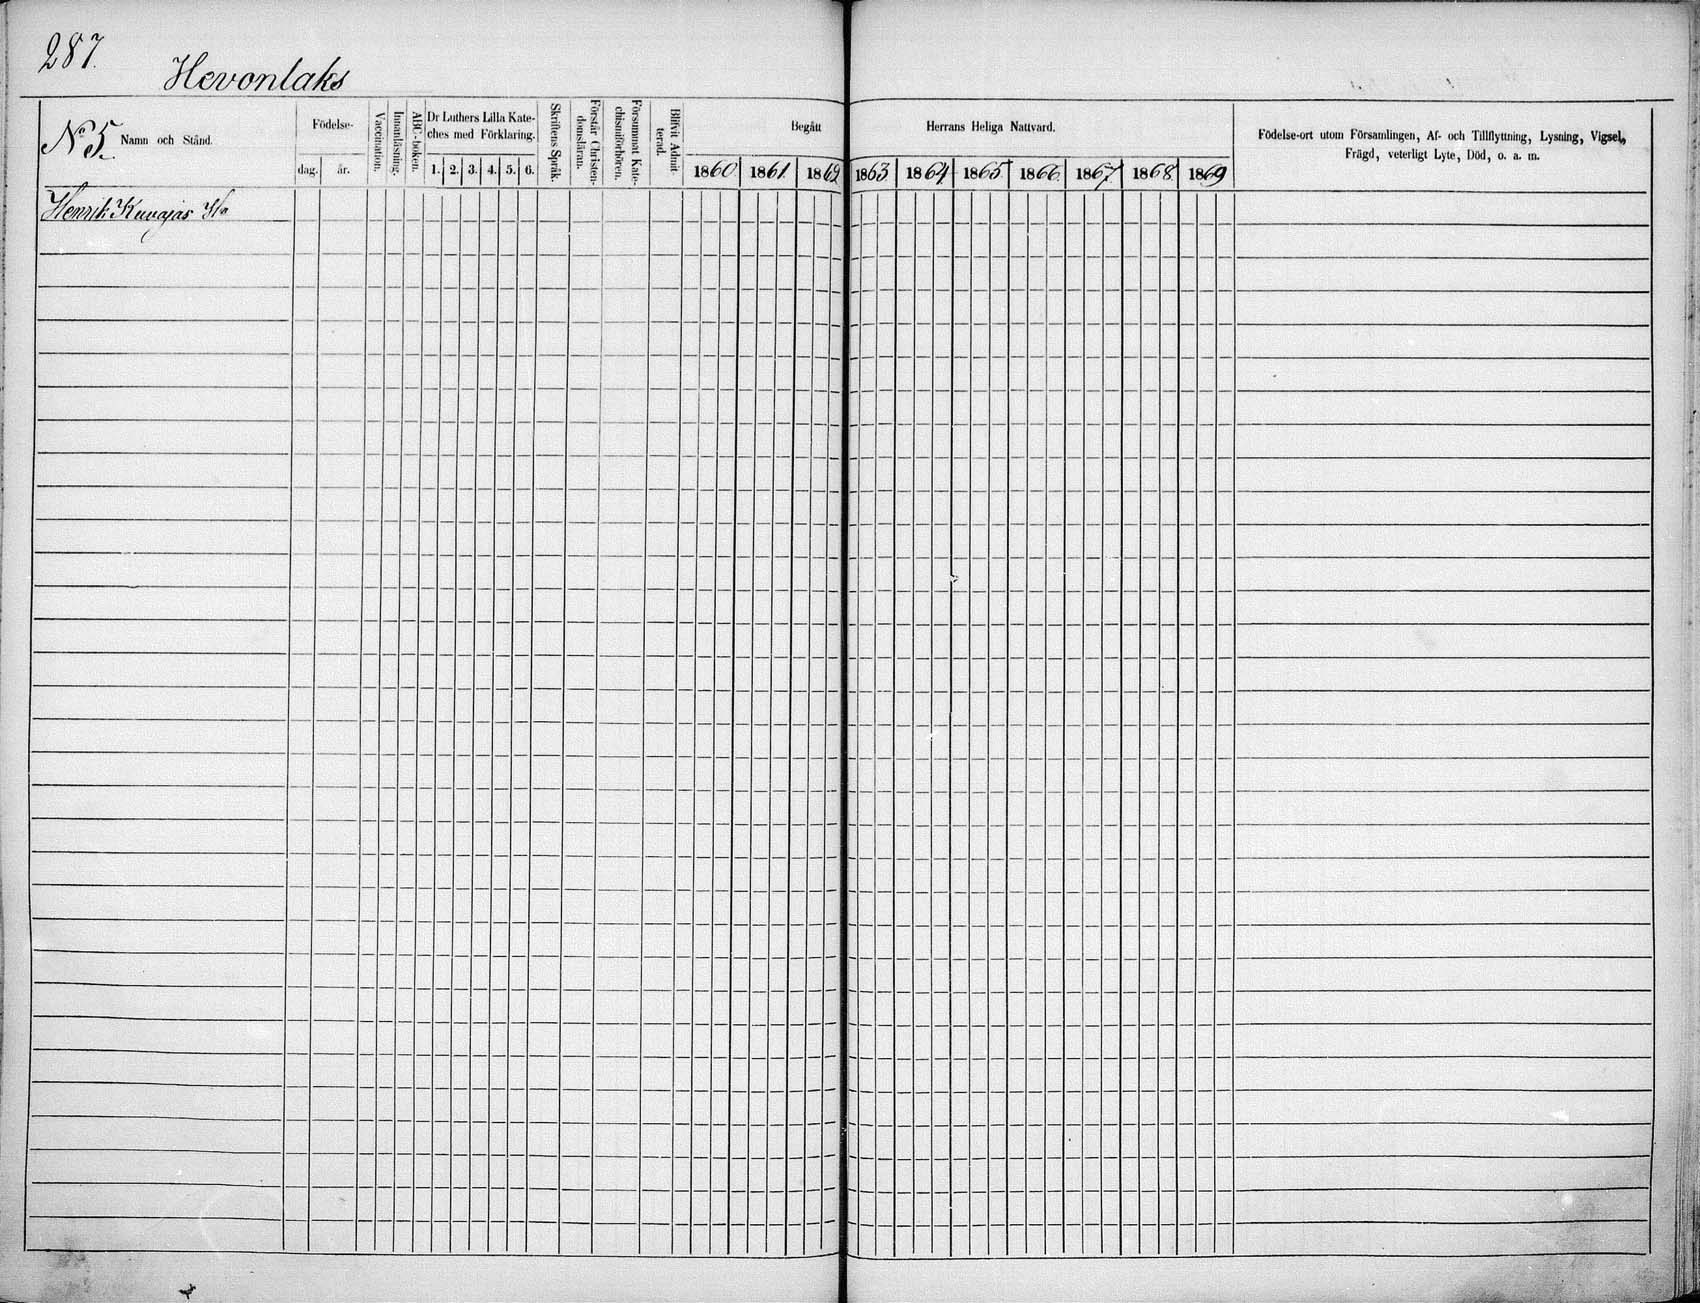 287.
Hevonlaks
No 5. Namn och Stånd.
Födelse-
dag. år.
Vaccination.
Innanläsning.
ABC-boken.
Dr Luthers Lilla Kate-
ches med Förklaring.
1. 2. 3. 4. 5. 6.
Skriftens Språk.
Förstår Christen-
domsläran.
Försummat Kate-
chismiförhören.
Blifvit Admit-
terad.
Begått Herrans Heliga Nattvard.
1860. 1861. 1862. 1863 1864 1865 1866. 1867. 1868. 1869
Födelse-ort utom Församlingen, Af- och Tillflyttning, Lysning, Vigsel,
Frägd, veterligt Lyte, Död, o. a. m.
Henrik Kuvajas